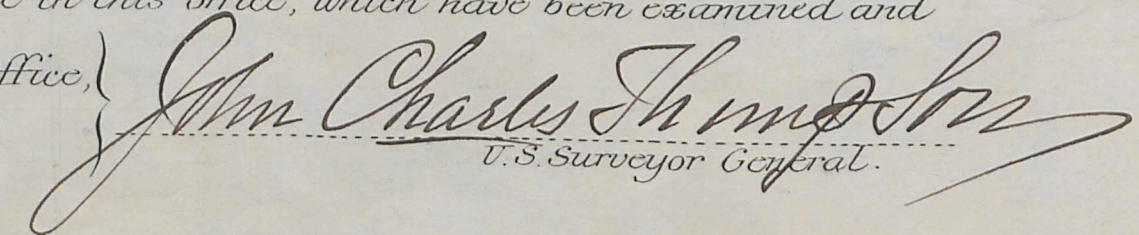 e in this office, which have been examined and
ffice, John Charles Thompson
U.S. Surveyor General.